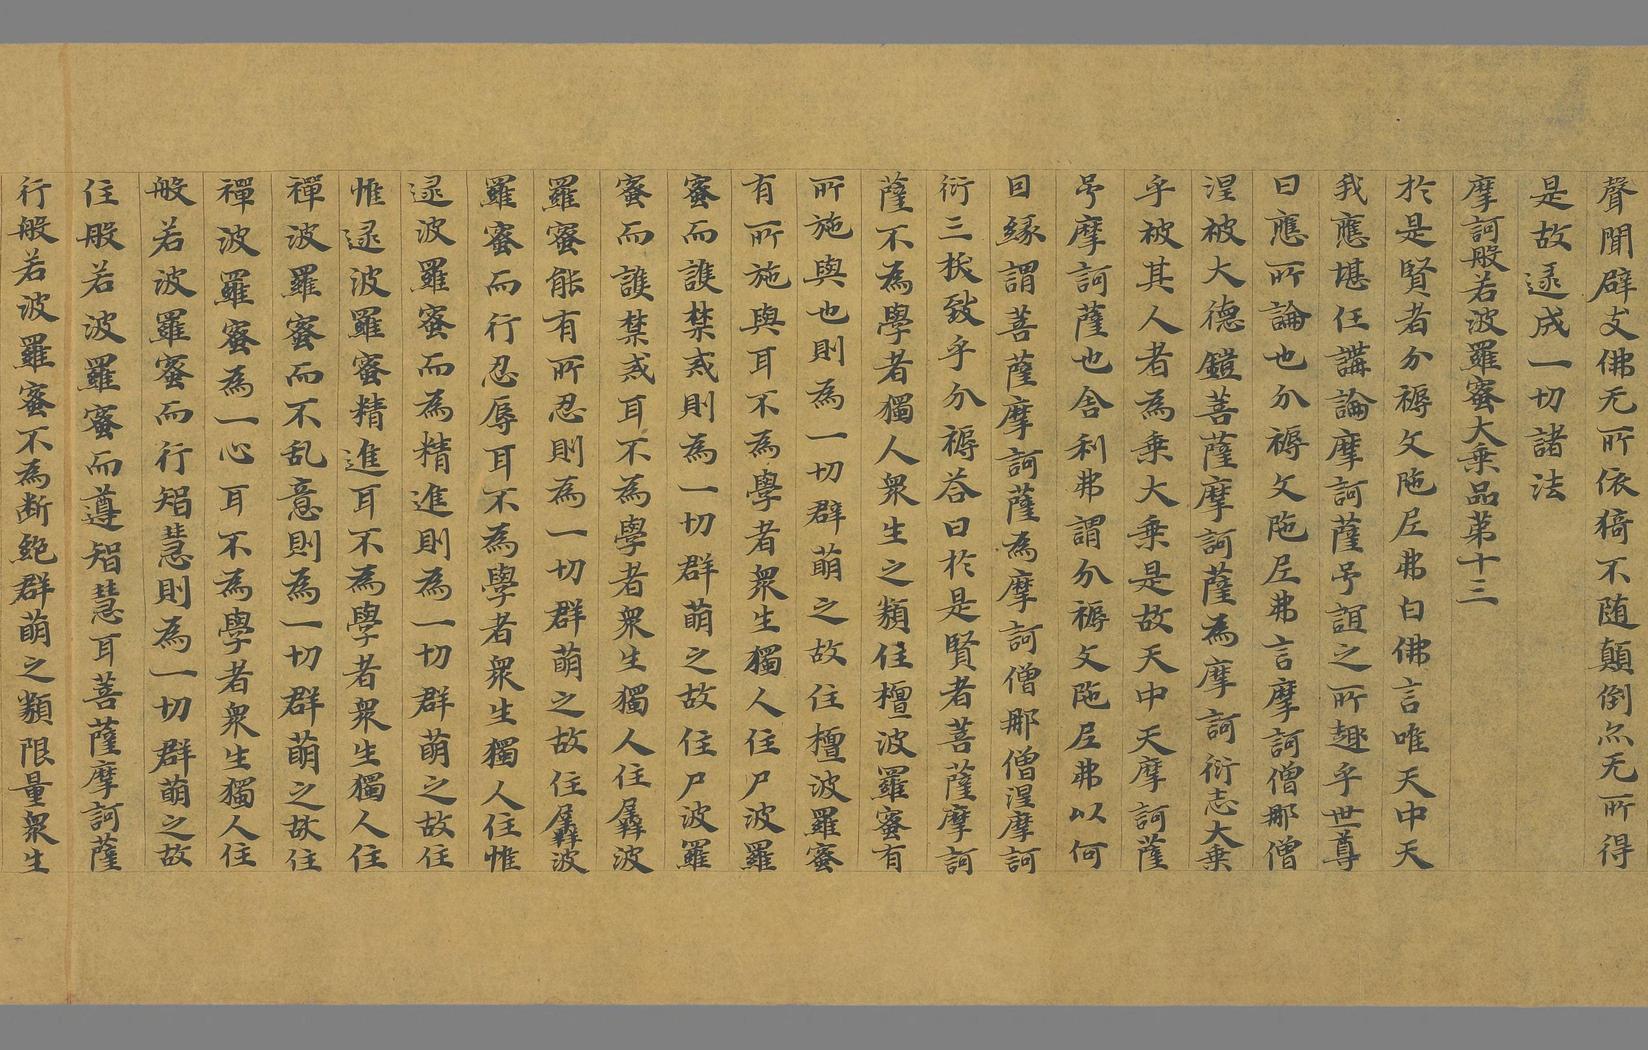 聲聞辟支佛无所依猗不随顛倒亦无所得
是故逮成一切諸法
摩訶般若波羅蜜大乗品第十三
於是賢者分耨文陁尼弗白佛言唯天中天
我應堪任講論摩訶薩号誼之所趣乎世尊
曰應所論也分耨文陁尼弗言摩訶僧那僧
涅被大德鎧菩薩摩訶薩為摩訶衍志大乗
乎被其人者為乗大乗是故天中天摩訶薩
号摩訶薩也舎利弗謂分耨文陁尼弗以何
因縁謂菩薩摩訶薩為摩訶僧那僧涅摩訶
衍三拔致乎分耨荅曰於是賢者菩薩摩訶
薩不為學者獨人衆生之類住檀波羅蜜有
所施與也則為一切群萌之故住檀波羅蜜
有所施與耳不為學者衆生獨人住尸波羅
蜜而護禁戒則為一切群萌之故住尸波羅
蜜而護禁戒耳不為學者衆生獨人住羼波
羅蜜能有所忍則為一切群萌之故住羼波
羅蜜而行忍辱耳不為學者衆生獨人住惟
逮波羅蜜而為精進則為一切群萌之故住
惟逮波羅蜜精進耳不為學者衆生獨人住
禪波羅蜜而不乱意則為一切群萌之故住
禪波羅蜜為一心耳不為學者衆生獨人住
般若波羅蜜而行智慧則為一切群萌之故
住般若波羅蜜而遵智慧耳菩薩摩訶薩
行般若波羅蜜不為断絶群萌之類限量衆生